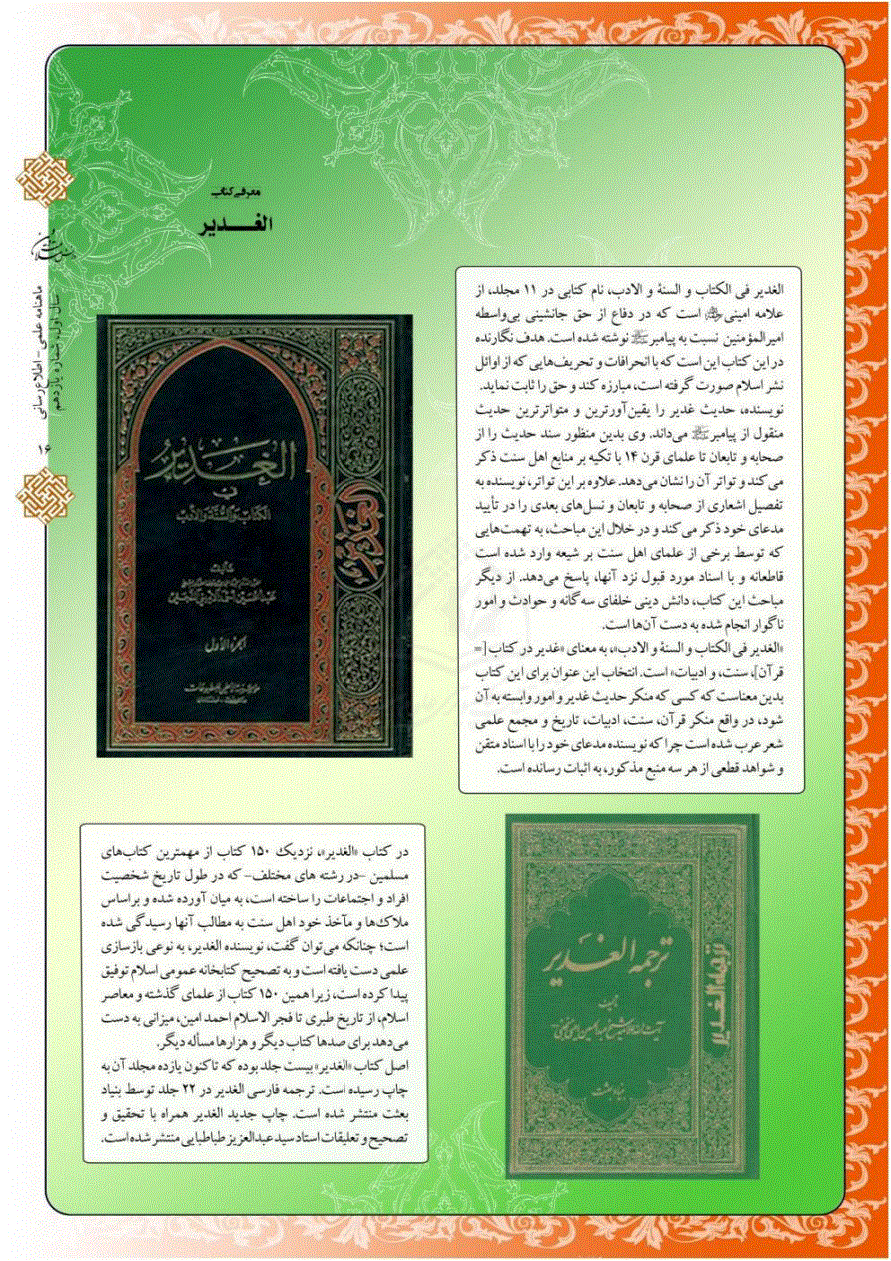 معرفی کتاب
الغـــدیر
الغدیر فی الکتاب و السنة و الادب، نام کتابی در ۱۱ مجلد، از
علامه امینی است که در دفاع از حق جانشینی بی‌واسطه
امیرالمؤمنین نسبت به پیامبرﷺ نوشته شده است. هدف نگارنده
در این کتاب این است که با انحرافات و تحریف‌هایی که از اوائل
نشر اسلام صورت گرفته است، مبارزه کند و حق را ثابت نماید.
نویسنده، حدیث غدیر را یقین‌آورترین و متواترترین حدیث
منقول از پیامبرﷺ می‌داند. وی بدین منظور سند حدیث را از
صحابه و تابعان تا علمای قرن ۱۴ با تکیه بر منابع اهل سنت ذکر
می‌کند و تواتر آن را نشان می‌دهد. علاوه بر این تواتر، نویسنده به
تفصیل اشعاری از صحابه و تابعان و نسل‌های بعدی را در تأیید
مدعای خود ذکر می‌کند و در خلال این مباحث، به تهمت‌هایی
که توسط برخی از علمای اهل سنت بر شیعه وارد شده است
قاطعانه و با اسناد مورد قبول نزد آنها، پاسخ می‌دهد. از دیگر
مباحث این کتاب، دانش دینی خلفای سه‌گانه و حوادث و امور
ناگوار انجام شده به دست آن‌ها است.
«الغدیر فی الکتاب و السنة و الادب»، به معنای «غدیر در کتاب [=
قرآن]، سنت، و ادبیات» است. انتخاب این عنوان برای این کتاب
بدین معناست که کسی که منکر حدیث غدیر و امور وابسته به آن
شود، در واقع منکر قرآن، سنت، ادبیات، تاریخ و مجمع علمی
شعر عرب شده است چرا که نویسنده مدعای خود را با اسناد متقن
و شواهد قطعی از هر سه منبع مذکور، به اثبات رسانده است.
الغدیر
فی
الکتاب والسنة والأدب
الجزء الأول
الغدیر
ترجمه الغدیر
ترجمه الغدیر
در کتاب «الغدیر»، نزدیک ۱۵۰ کتاب از مهمترین کتاب‌های
مسلمین -در رشته های مختلف- که در طول تاریخ شخصیت
افراد و اجتماعات را ساخته است، به میان آورده شده و براساس
ملاک‌ها و مآخذ خود اهل سنت به مطالب آنها رسیدگی شده
است؛ چنانکه می‌توان گفت، نویسنده الغدیر، به نوعی بازسازی
علمی دست یافته است و به تصحیح کتابخانه عمومی اسلام توفیق
پیدا کرده است، زیرا همین ۱۵۰ کتاب از علمای گذشته و معاصر
اسلام، از تاریخ طبری تا فجر الاسلام احمد امین، میزانی به دست
می‌دهد برای صدها کتاب دیگر و هزارها مسأله دیگر.
اصل کتاب «الغدیر» بیست جلد بوده که تاکنون یازده مجلد آن به
چاپ رسیده است. ترجمه فارسی الغدیر در ۲۲ جلد توسط بنیاد
بعثت منتشر شده است. چاپ جدید الغدیر همراه با تحقیق و
تصحیح و تعلیقات استاد سید عبدالعزیز طباطبایی منتشر شده است.
ماهنامه علمی - اطلاع‌رسانی
سال اول، شماره یازدهم
۱۶